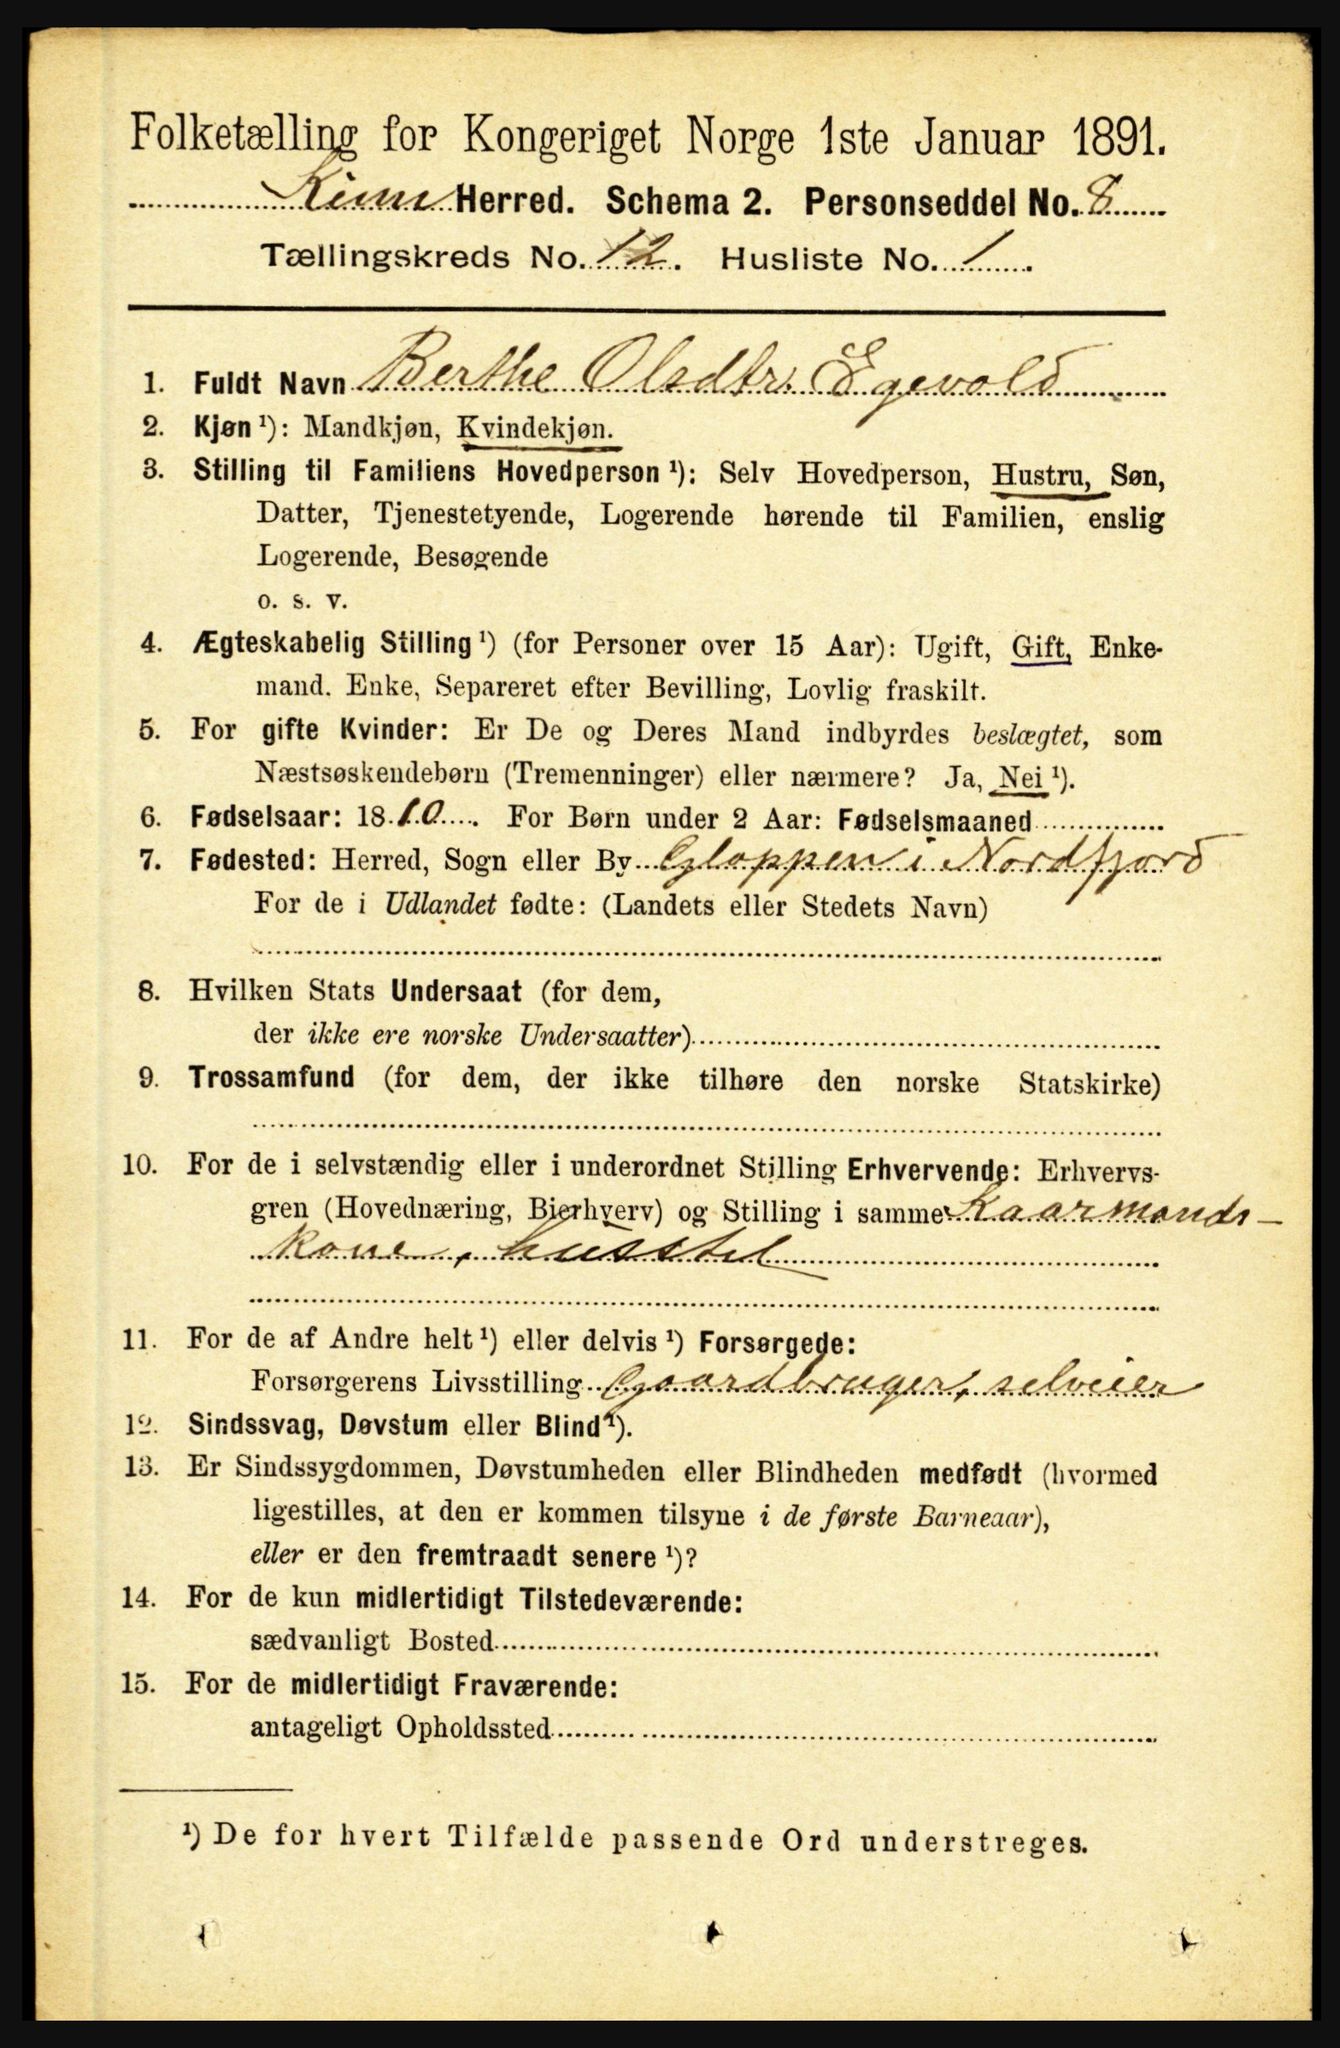 Folketælling for Kongeriget Norge 1ste Januar 1891.
Kinn Herred. Schema 2. Personseddel No. 8
Tællingskreds No. 12. Husliste No. 1.
1. Fuldt Navn Berthe Olsdtr. Egevold
2. Kjøn ¹): Mandkjøn, Kvindekjøn.
3. Stilling til Familiens Hovedperson ¹): Selv Hovedperson, Hustru, Søn,
Datter, Tjenestetyende, Logerende hørende til Familien, enslig
Logerende, Besøgende
o. s. v.
4. Ægteskabelig Stilling ¹) (for Personer over 15 Aar): Ugift, Gift, Enke-
mand. Enke, Separeret efter Bevilling, Lovlig fraskilt.
5. For gifte Kvinder: Er De og Deres Mand indbyrdes beslægtet, som
Næstsøskendebørn (Tremenninger) eller nærmere? Ja, Nei ¹).
6. Fødselsaar: 1810. For Børn under 2 Aar: Fødselsmaaned
7. Fødested: Herred, Sogn eller By Gloppen i Nordfjord
For de i Udlandet fødte: (Landets eller Stedets Navn)
8. Hvilken Stats Undersaat (for dem,
der ikke ere norske Undersaatter)
9. Trossamfund (for dem, der ikke tilhøre den norske Statskirke)
10. For de i selvstændig eller i underordnet Stilling Erhvervende: Erhvervs-
gren (Hovednæring, Bierhverv) og Stilling i samme Kaarmands-
kone, husstel
11. For de af Andre helt ¹) eller delvis ¹) Forsørgede:
Forsørgerens Livsstilling Gaardbruger, selveier
12. Sindssvag, Døvstum eller Blind ¹).
13. Er Sindssygdommen, Døvstumheden eller Blindheden medfødt (hvormed
ligestilles, at den er kommen tilsyne i de første Barneaar),
eller er den fremtraadt senere ¹)?
14. For de kun midlertidigt Tilstedeværende:
sædvanligt Bosted
15. For de midlertidigt Fraværende:
antageligt Opholdssted
¹) De for hvert Tilfælde passende Ord understreges.